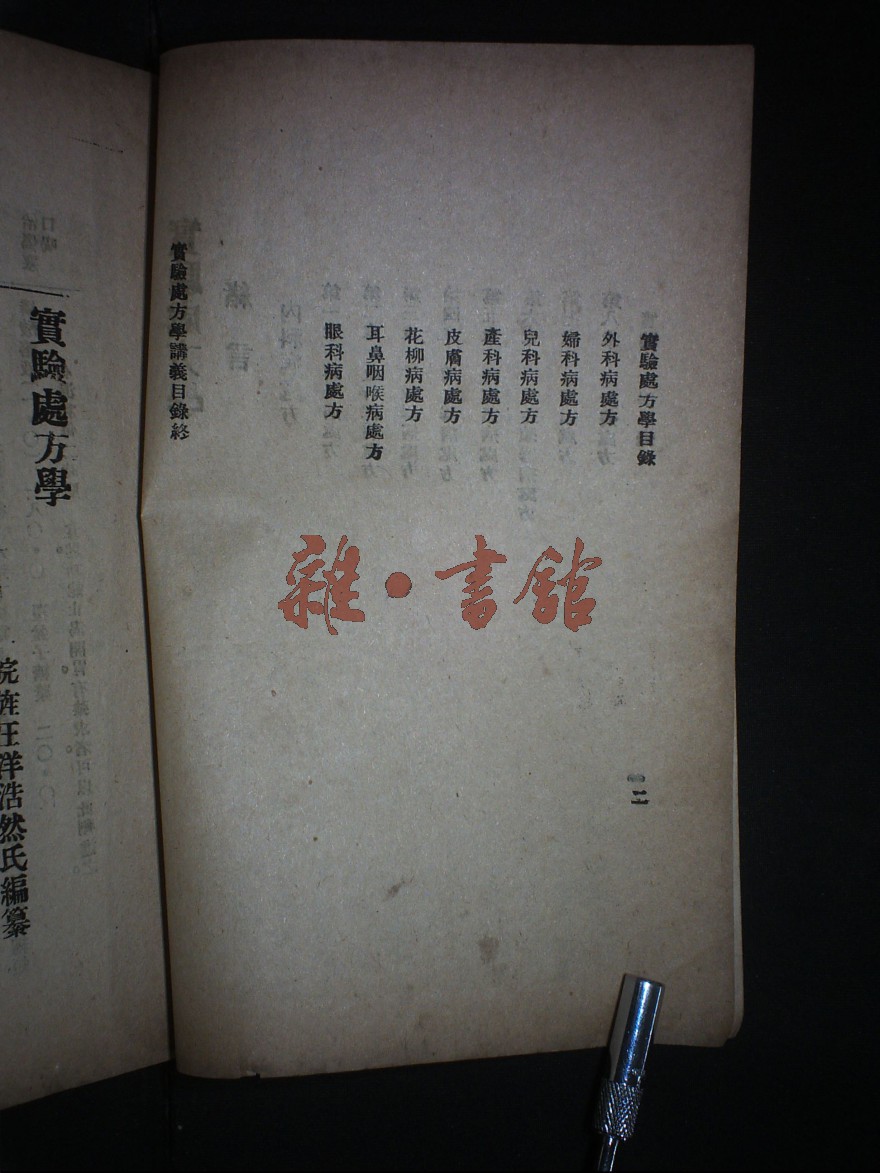 實驗處方學目錄
外科病處方
婦科病處方
兒科病處方
產科病處方
皮膚病處方
花柳病處方
耳鼻咽喉病處方
眼科病處方
實驗處方學講義目錄終
二
雜·書館
實驗處方學
汪洋浩然氏編纂